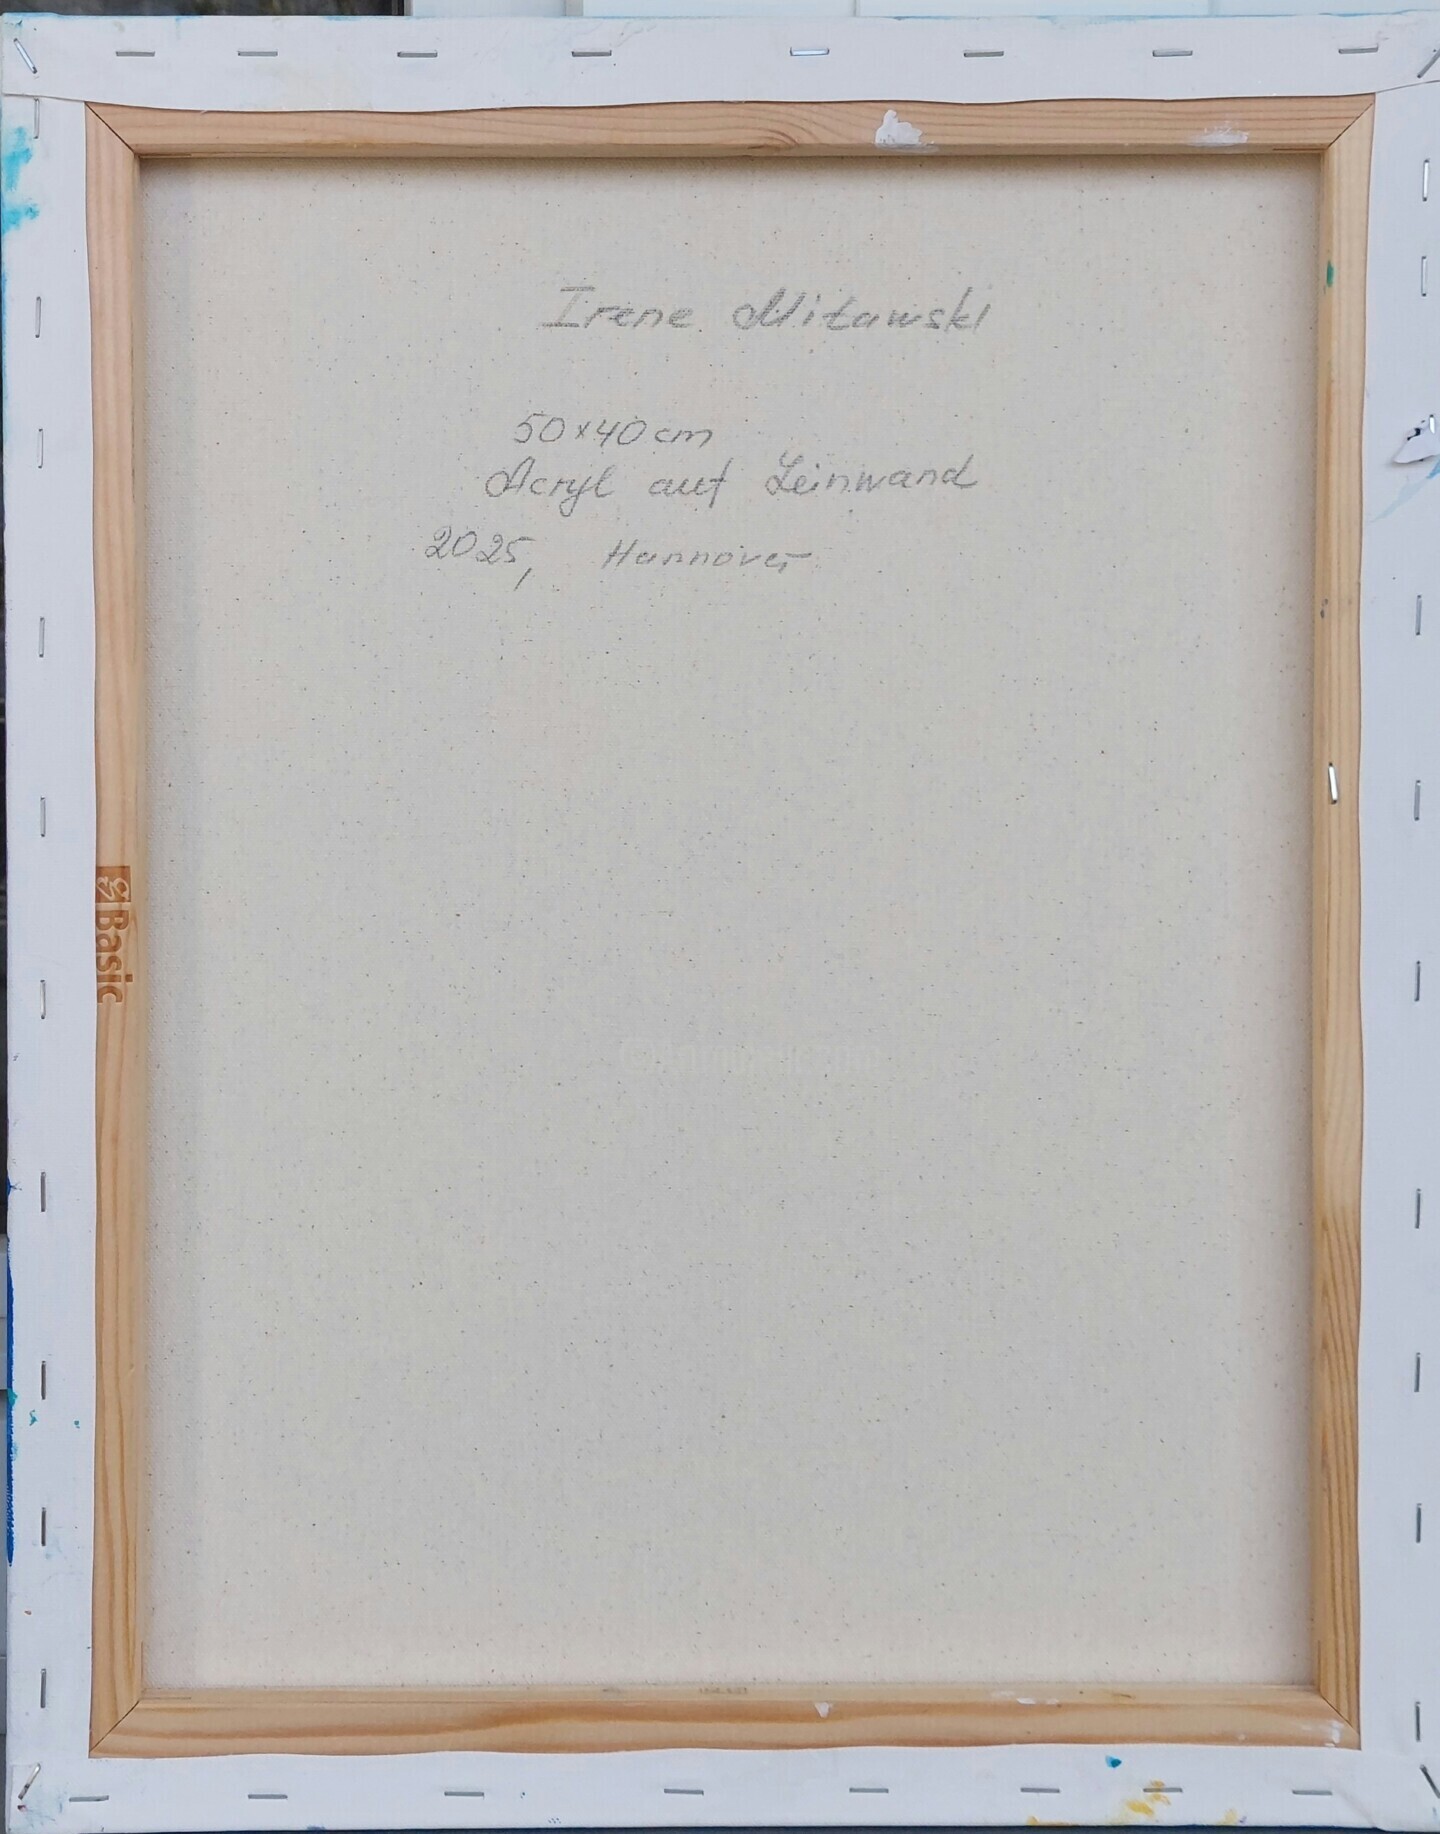 Irene Mitawski
50x40 cm
Acryl auf Leinwand
2025, Hannover
Basic